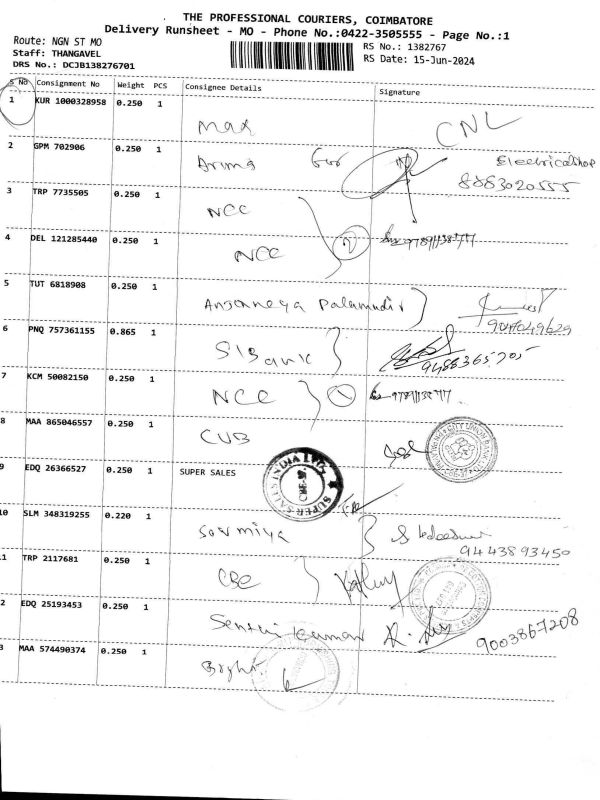 THE PROFESSIONAL COURIERS, COIMBATORE
Delivery Runsheet - MO - Phone No.:0422-3505555 - Page No.:1
Route: NGN ST MO
Staff: THANGAVEL
DRS No.: DCJB138276701
RS No.: 1382767
RS Date: 15-Jun-2024
S No Consignment No Weight PCS Consignee Details Signature
1 KUR 1000328958 0.250 1 Max CNL
2 GPM 702906 0.250 1 Electricalshop
8883020555
3 TRP 7735505 0.250 1 NCC
4 DEL 121285440 0.250 1 NCC 2
5 TUT 6818908 0.250 1 Anjanneya Palamudir
6 PNQ 757361155 0.865 1 SIBank
9488365705
7 KCM 50082150 0.250 1 NCC
8 MAA 865046557 0.250 1 CUB
CITY UNION BANK
9 EDQ 26366527 0.250 1 SUPER SALES
SUPER SALES INDIA LTD
CBE-37
10 SLM 348319255 0.220 1 Sowmiya
9443893450
1 TRP 2117681 0.250 1 CBC
2 EDQ 25193453 0.250 1 Senthil Kumar
9003867208
3 MAA 574490374 0.250 1 Bright